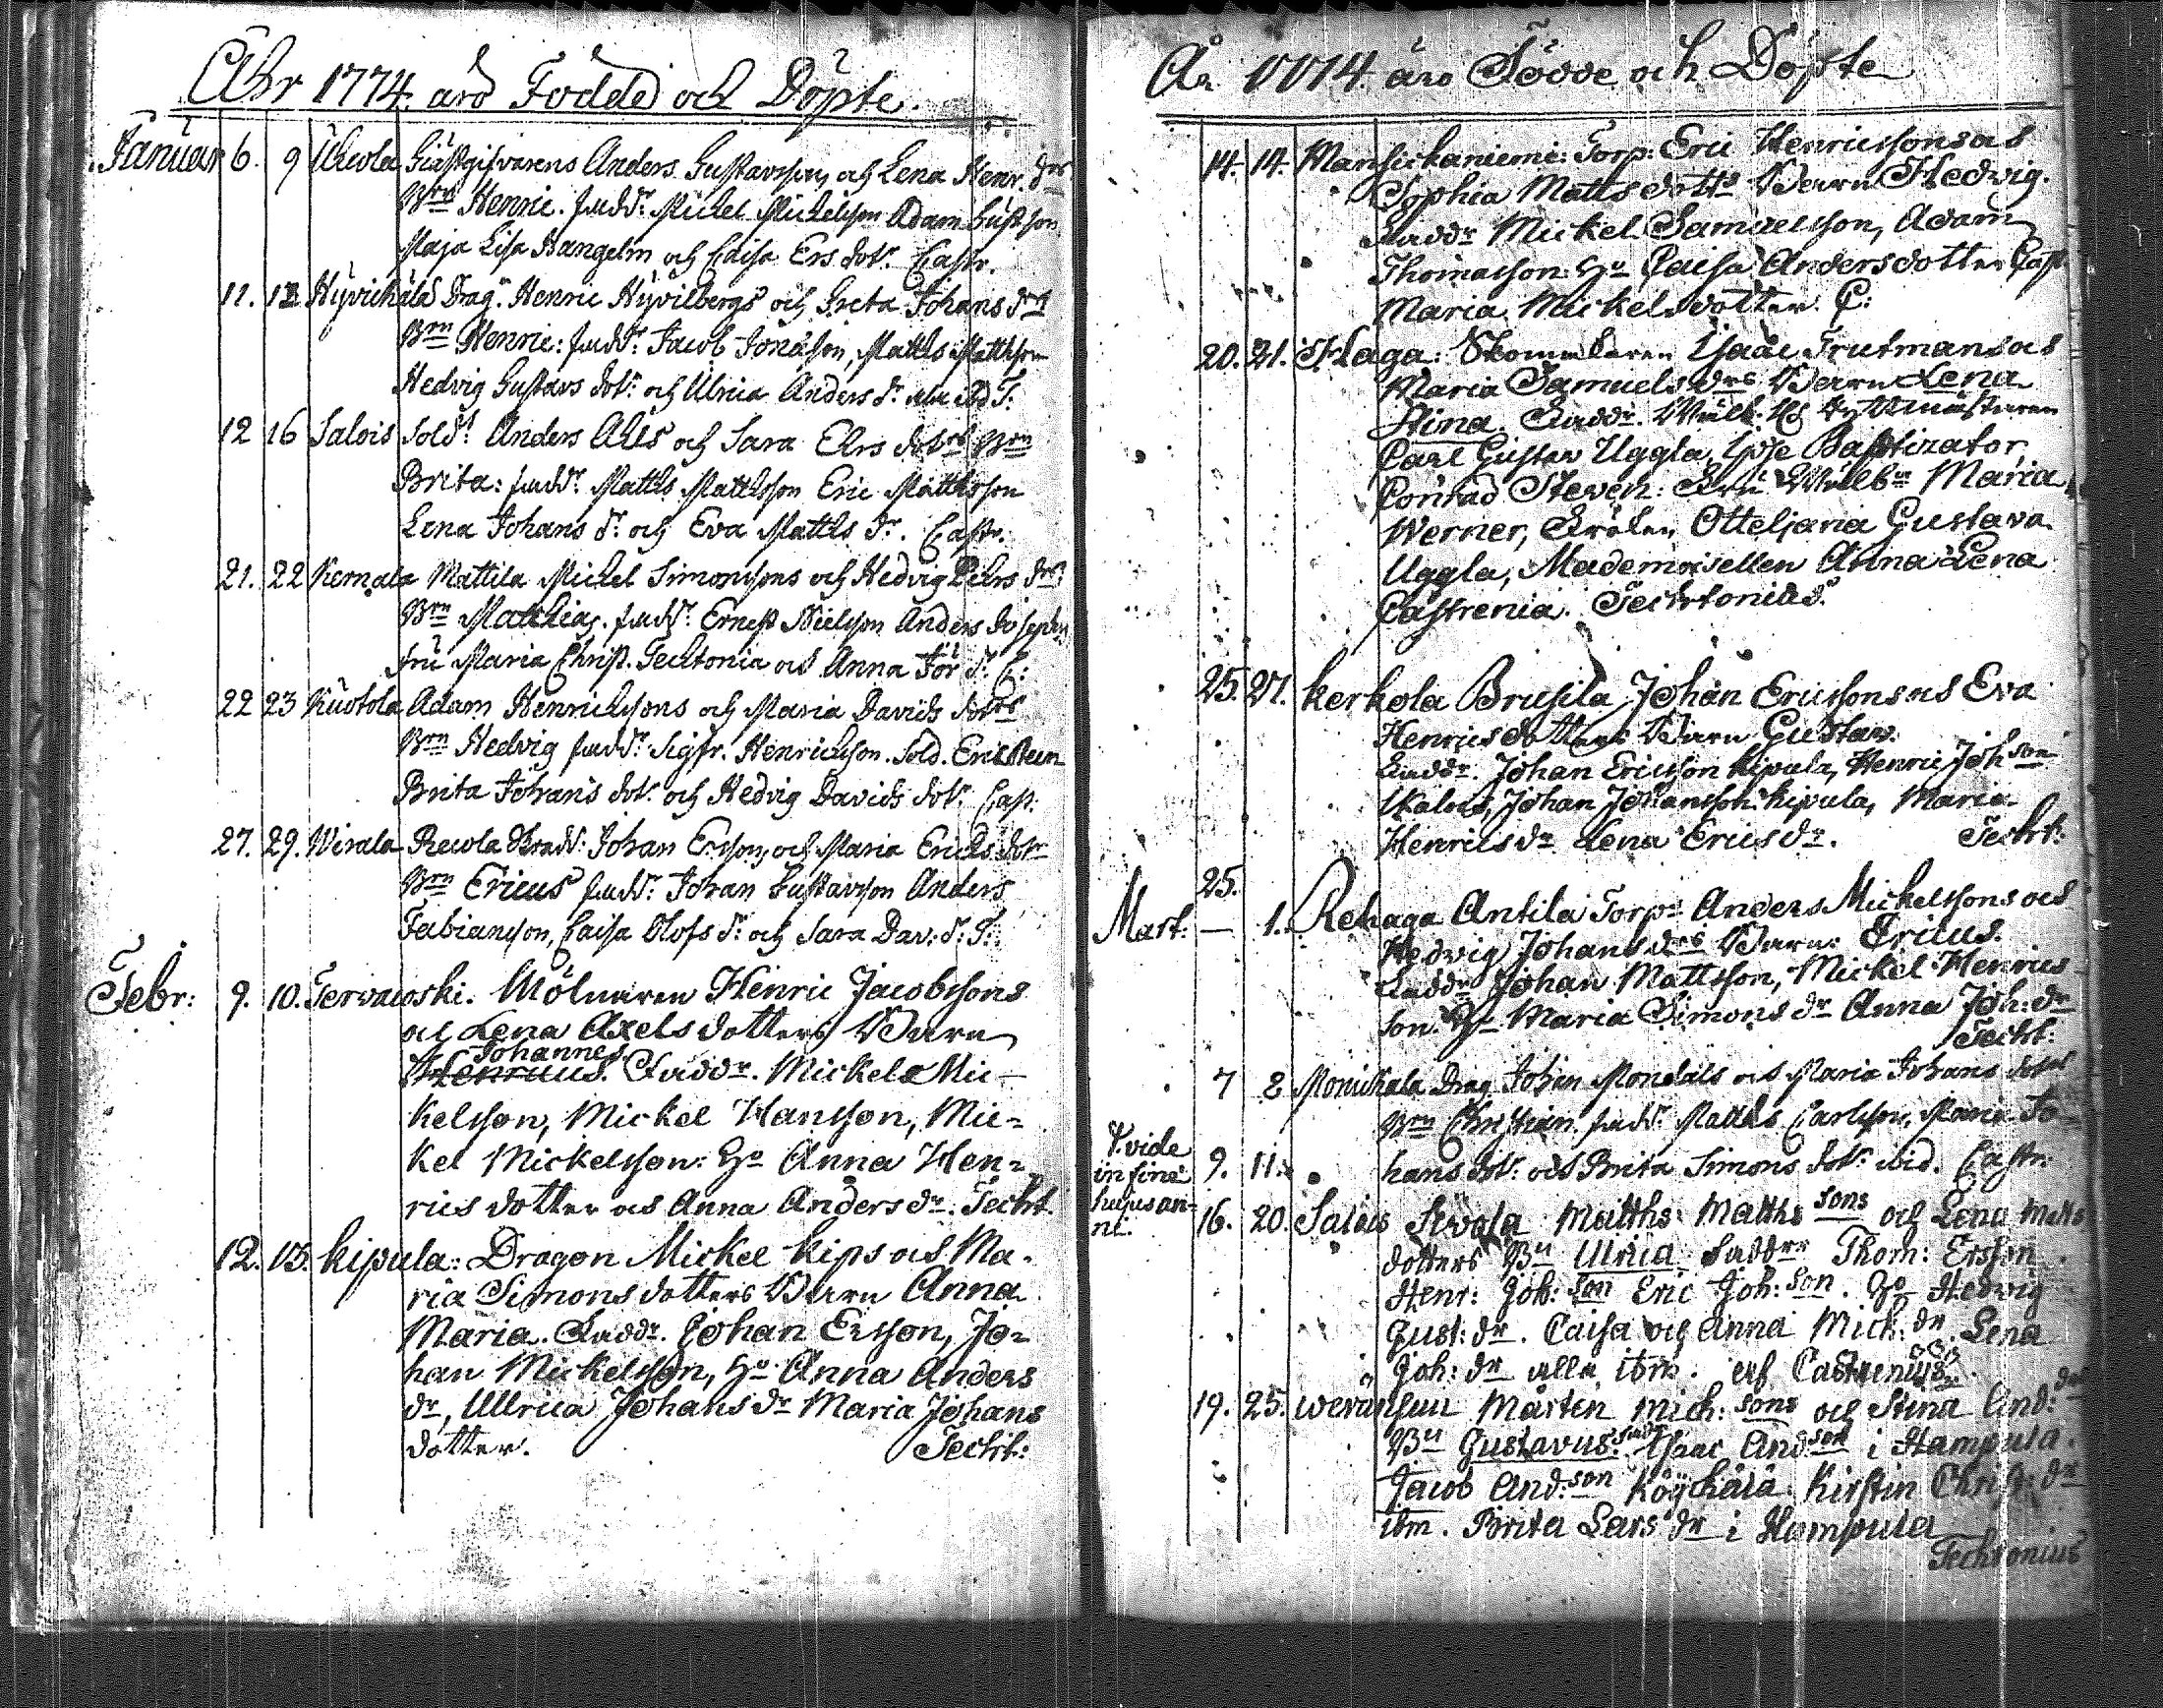 Åhr 1774 äro Födde och Döpte.
Januar 6. 9 Uhkola Giästgifvarens Anders Gustavsson, och Lena Henr. drs
Brn Henric. fadd: Michel Michelsson Adam Gust son
Maja Lisa Hangelin och Caisa Ers dotr. Castr.
11. 12 Hyvickälä Drag. Henric Hyvilbergs och Greta Johans drs
Brn Henric: fadd: Jacob Jonasson, Matths Matthsson
Hedvig Gustavs dotr och Ulrica Anders dr T:
12 16 Salois Sold: Anders Ahls och Sara Ers dotrs Brn
Brita: fadd: Matths Matthsson Eric Matthsson
Lena Johans dr och Eva Matths dr. Castr.
21. 22 Kernala Mattila Michel Simonssons och Hedvig drs
Brn Matthias. fadd: Ernst Nielsson Anders Josephss
fru Maria Christ. Techtonia och Anna Jör dr C:
22 23 Kuotola Adam Henrichssons och Maria Davids dotrs
Brn Hedvig fadd: Sigfr. Henrichsson. Sold. Eric
Brita Johans dotr och Hedvig Davids dotr Cast:
27. 29. Wirala Recola Johan Ersson, och Maria Erichs dotr
Brn Ericus fadd: Johan Gustavsson Anders
Fabiansson, Caisa Olofs dr och Sara Dav: dr T:
Febr: 9. 10. Tervakoski. Mölnaren Henric Jacobssons
och Lena Axelsdotters Barn
Johannes
Henricus. Faddr. Mickel Mic-
kelsson, Mickel Hansson, Mic=
kel Mickelsson: Hu Anna Hen=
ricsdotter och Anna Andersdr: Techt.
12. 13. Kipula: Dragon Mickel Kips och Ma=
ria Simonsdotters Barn Anna
Maria. Faddr. Johan Ersson, Jo=
han Mickelsson, Hu Anna Anders
dr, Ullrica Johansdr Maria Johans
dotter. Techt:
År 1774 äro Födde och Döpte
14. 14. Mansickaniemi: Torp: Eric Henricssons och
Sophia Matts dotts Barn Hedvig.
Faddr Mickel Samuelsson, Adam
Thomasson: Hu Caisa Andersdotter
Maria Mickelsdotter. C:
20. 21. Haga: Skomakaren Isaac Trutmans och
Maria Samuels drs Barn Lena
Stina. Faddr. Wälb: H Ryttmästaren
Carl Gustav Uggla, Baptizator,
Conrad Steven: Fru Wälbn Maria
Werner, Fröken Otteljana Gustava
Uggla, Mademoisellen Anna Lena
Castrenia. Techtonius.
25. 27. Kerkola Brusila Johan Ericssons och Eva
Henricsdotters Barn Gustav.
Faddr. Johan Ericsson Kipula, Henric Johson
Ukalois, Johan Johansson Kipula, Maria
Henricsdr Lena Ericsdr. Techt:
25.
Mart: — 1. Rehaga Antila Torpr Anders Mickelssons och
Hedvig Johansdrs Barn: Ericus.
Faddr Johan Mattsson, Mickel Henrics
son. Hu Maria Simonsdr Anna Joh: dr
Techt:
7 8 Monickala Drag. Johan Mondals och Maria Johans dotrs
Brn Christian. fadd: Matths Carlsson, Maria Jo=
V. vide
in fine
hujus an-
ni.
9. 11. hans dotr och Brita Simons dotr ibid. Castr:
16. 20. Salois Sivola Matths Matths sons och Lena Matts
dotters Bn Ulrica. Faddrr Thom: Ersson
Henr: Joh: son Eric Joh: son. Hu Hedwig
Gust: dr. Caisa och Anna Mich: dr Lena
Joh: dr alla ibm. af Castrenius.
19. 25. Mårten Mich: sons och Stina And: drs
Bn Gustavus: fadd Isaac Andson i Hampula.
Jacob And: son Köyhälä Kirstin Christ: dr
ibm. Brita Lars dr i Hampula
Techtonius